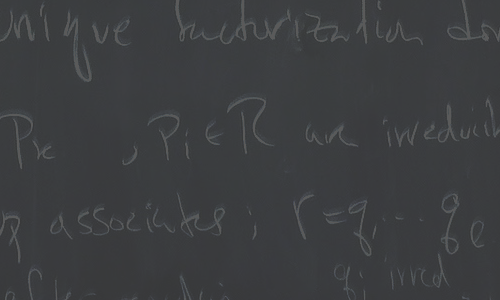 unique factorization do
P_k , P_i ∈ R are irreducib
associates ; r = q_1 ... q_e
q_i irred